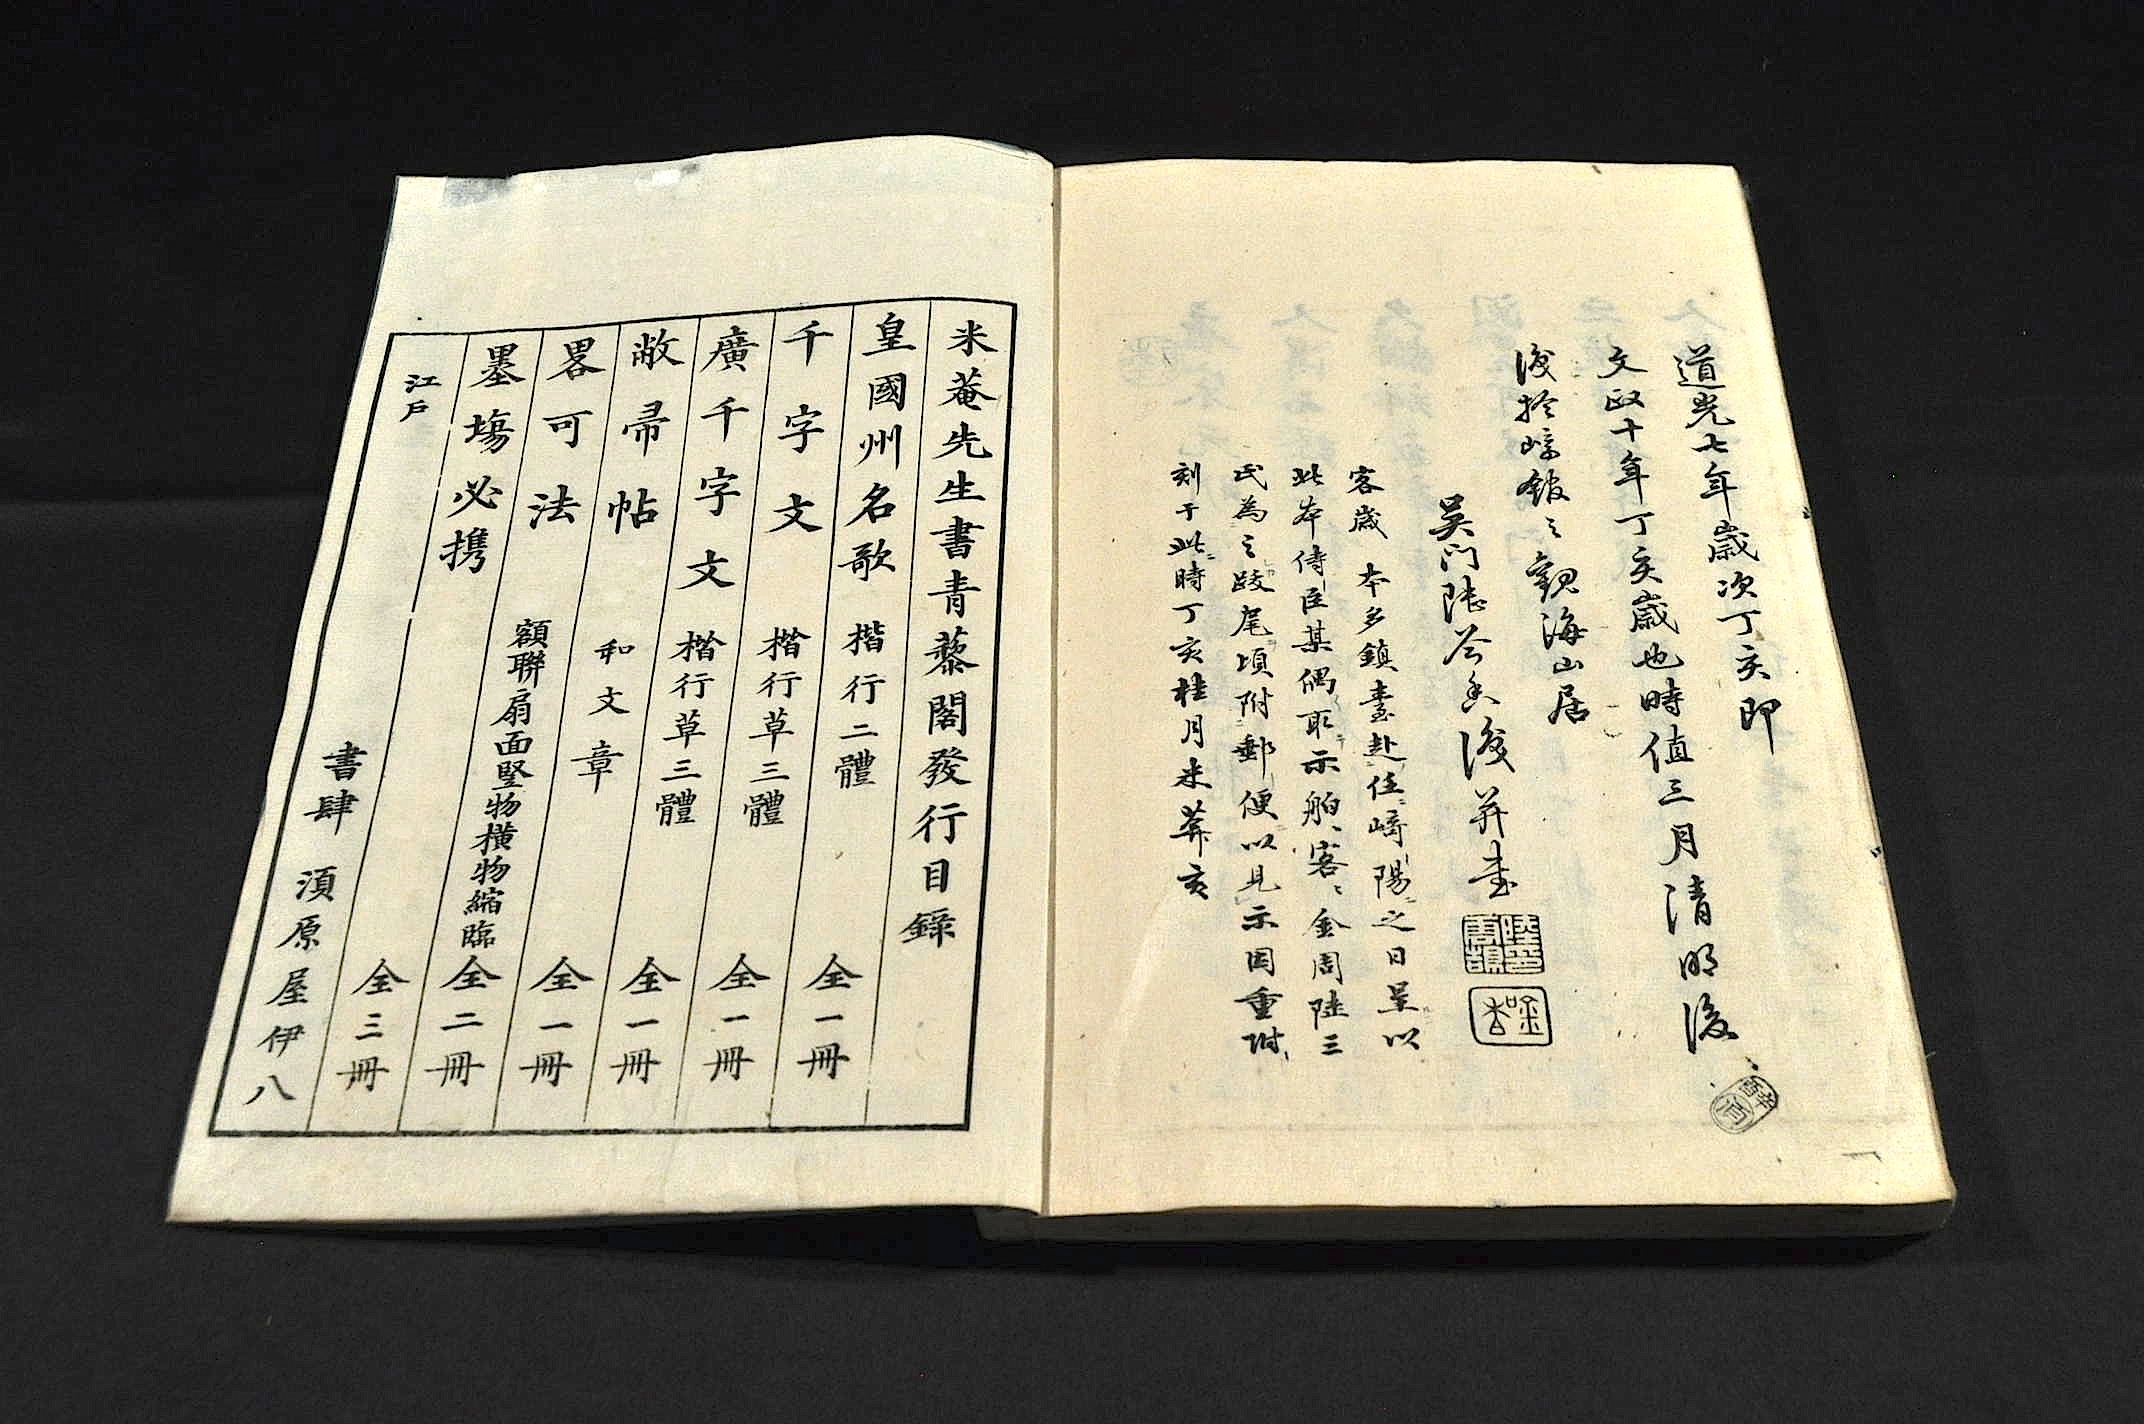 道光七年歲次丁亥即
文政十年丁亥歲也時值三月清明後
後於崎館之觀海山居
吳門陸 後并書
客歲 本多鎮臺赴任崎陽之日呈以
此本侍臣某偶取示舶客金周陸三
氏為之跋尾頃附郵便以見示因重附
刻于此時丁亥桂月米葊亥
米菴先生書青藜閣發行目錄
皇國州名歌 楷行二體 全一冊
千字文 楷行草三體 全一冊
廣千字文 楷行草三體 全一冊
敝帚帖 和文章 全一冊
畧可法 額聯扇面竪物橫物縮臨 全二冊
墨場必携 全三冊
江戶 書肆 須原屋伊八